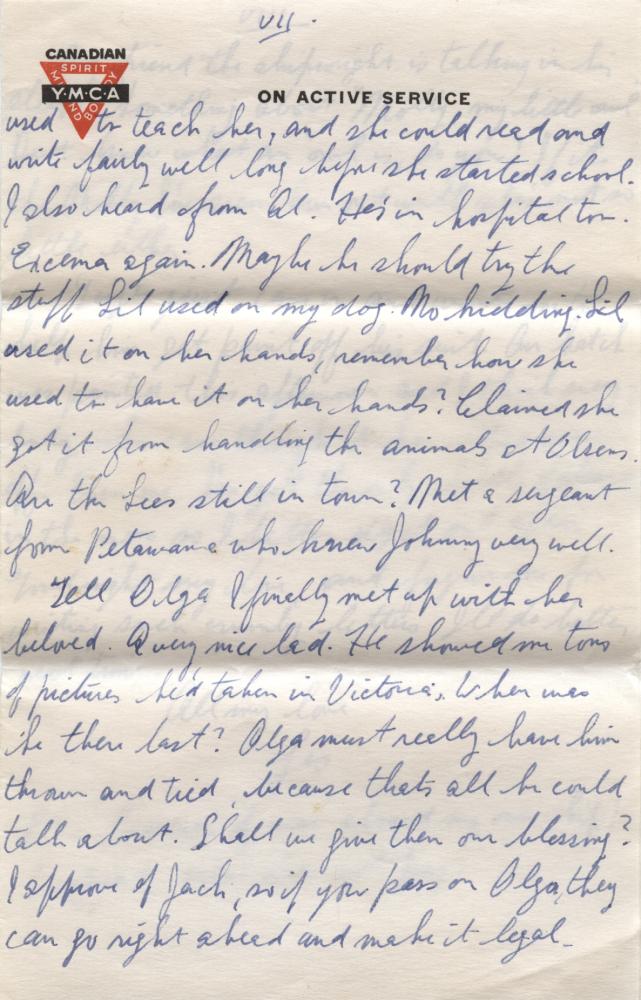 VII.
CANADIAN
SPIRIT
Y·M·C·A
MIND
BODY
ON ACTIVE SERVICE
used to teach her, and she could read and
write fairly well long before she started school.
I also heard from Al. He's in hospital too.
Excema again. Maybe he should try the
stuff Lil used on my dog. No kidding. Lil
used it on her hands, remember how she
used to have it on her hands? Claimed she
got it from handling the animals at Olsens.
Are the Lees still in town? Met a sergeant
from Petawawa who knew Johnny very well.
Tell Olga I finally met up with her
beloved. A very nice lad. He showed me tons
of pictures he'd taken in Victoria. When was
he there last? Olga must really have him
thrown and tied, because thats all he could
talk about. Shall we give them our blessing?
I approve of Jack, so if you pass on Olga, they
can go right ahead and make it legal.